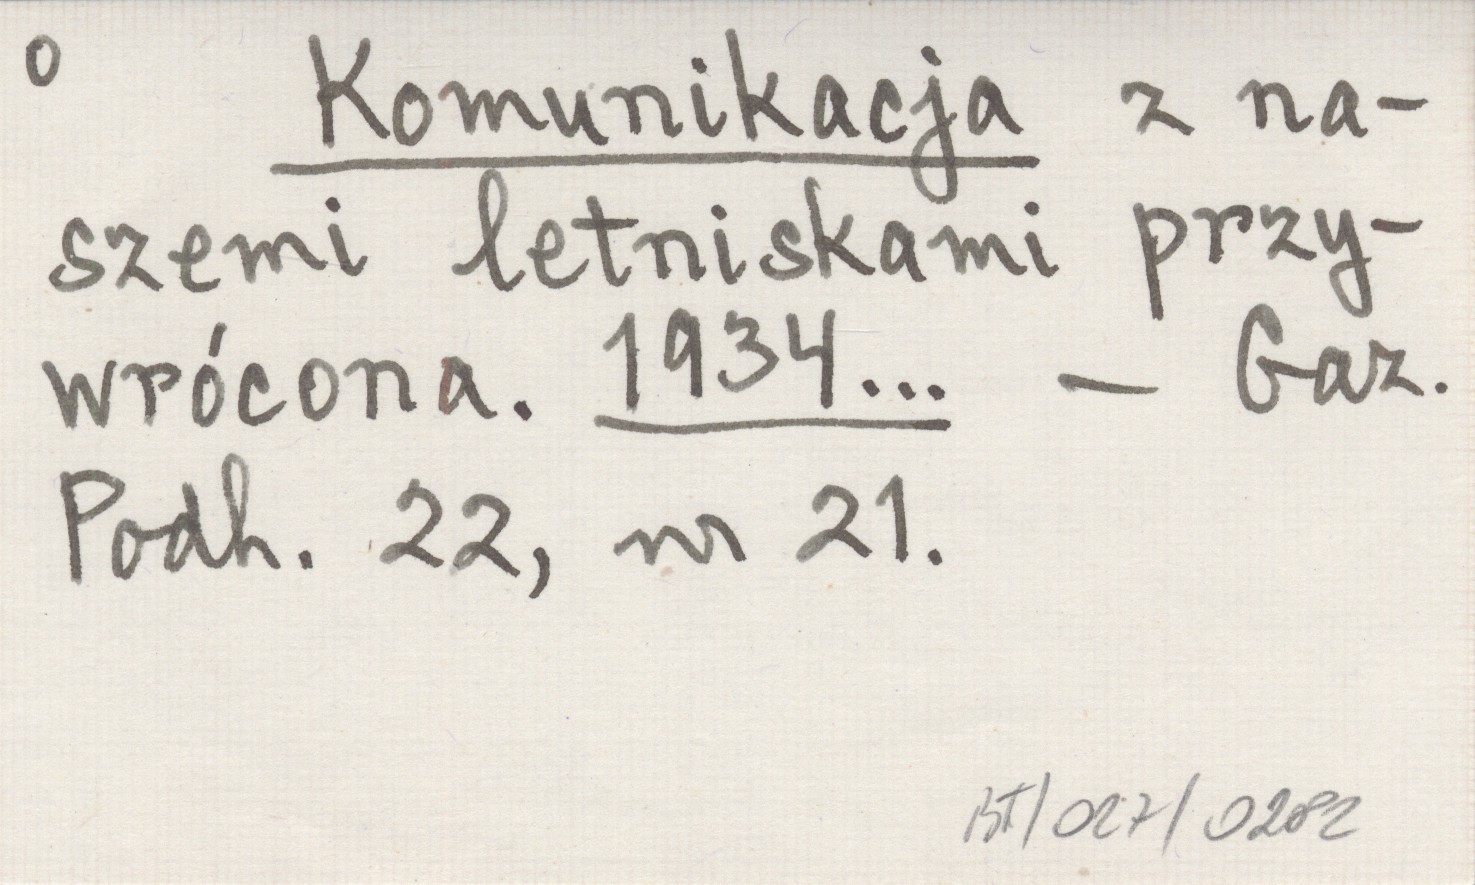 o Komunikacja z na-
szemi letniskami przy-
wrócona. 1934... – Gaz.
Podh. 22, nr 21.
BT/027/0282